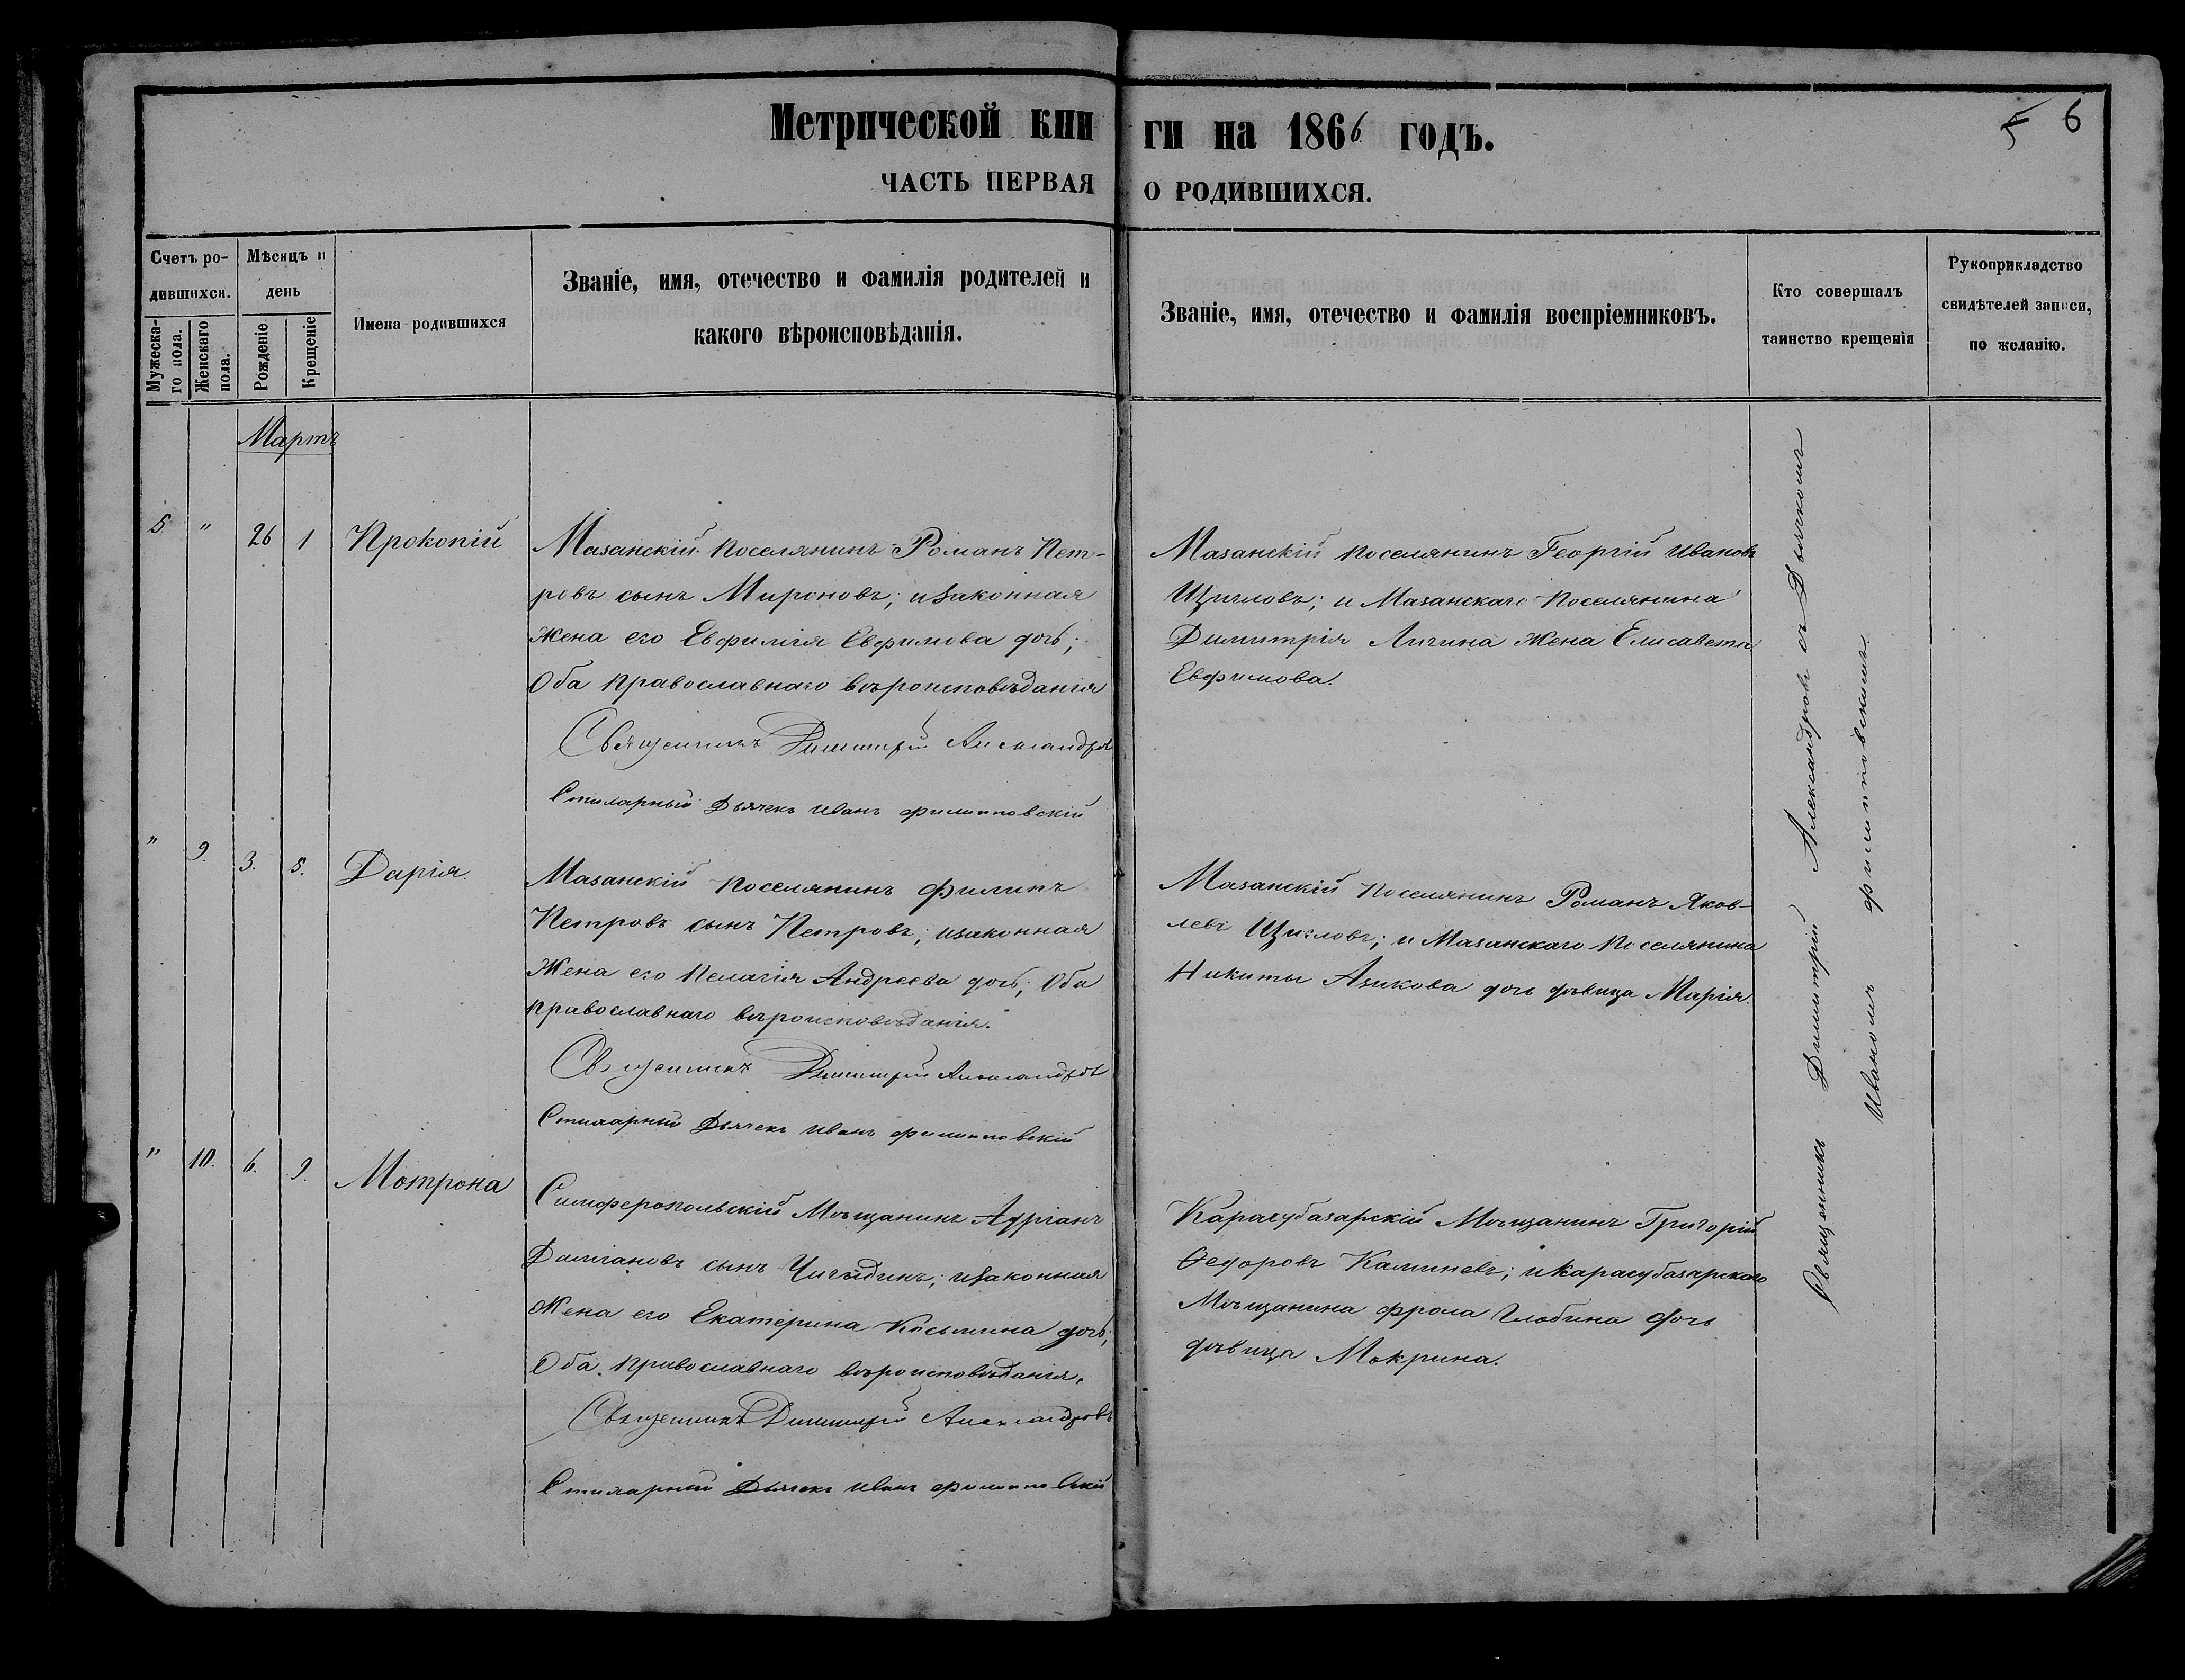 Метрической кни ги на 1866 годъ.
5 6
ЧАСТЬ ПЕРВАЯ О РОДИВШИХСЯ.
Счетъ ро-
дившихся.
Мужеска-
го пола.
Женскаго
пола.
Мѣсяцъ и
день
Рожденіе
Крещеніе
Имена родившихся
Званіе, имя, отечество и фамилія родителей и
какого вѣроисповѣданія.
Званіе, имя, отечество и фамилія воспріемниковъ.
Кто совершалъ
таинство крещенія
Рукоприкладство
свидѣтелей записи,
по желанію.
Мартъ
5 " 26 1 Прокопій
Мазанскій поселянинъ Романъ Пет-
ровъ сынъ Мироновъ; изаконная
жена его Евфимія Евфимова дочь;
Оба православнаго вѣроисповѣданія
Священникъ Димитрій Александровъ
Стихарный Дьячекъ Иванъ Филипповскій
Мазанскій поселянинъ Георгій Ивановъ
Щигловъ; и Мазанскаго поселянина
Димитрія Личина жена Елисавета
Евфимова.
" 9. 3. 5. Дарія.
Мазанскій поселянинъ Филипъ
Петровъ сынъ Петровъ; изаконная
жена его Пелагія Андреева дочь; Оба
православнаго вѣроисповѣданія.
Священникъ Димитрій Александровъ
Стихарный Дьячекъ Иванъ Филипповскій
Мазанскій поселянинъ Романъ Яков-
левъ Щигловъ; и Мазанскаго поселянина
Никиты Азикова дочь дѣвица Марія.
" 10. 6. 9. Мотрона
Симферопольскій Мѣщанинъ Адріанъ
Даміановъ сынъ Чигадинъ; изаконная
жена его Екатерина Косьмина дочь;
Оба православнаго вѣроисповѣданія.
Священникъ Димитрій Александровъ
Стихарный Дьячекъ Иванъ Филипповскій
Карасубазарскій Мѣщанинъ Григорій
Ѳедоровъ Каминевъ; и Карасубазарскаго
Мѣщанина Фрола Глобина дочь
дѣвица Мокрина.
Священникъ Димитрій Александровъ съ Дьячкомъ
Иваномъ Филипповскимъ.